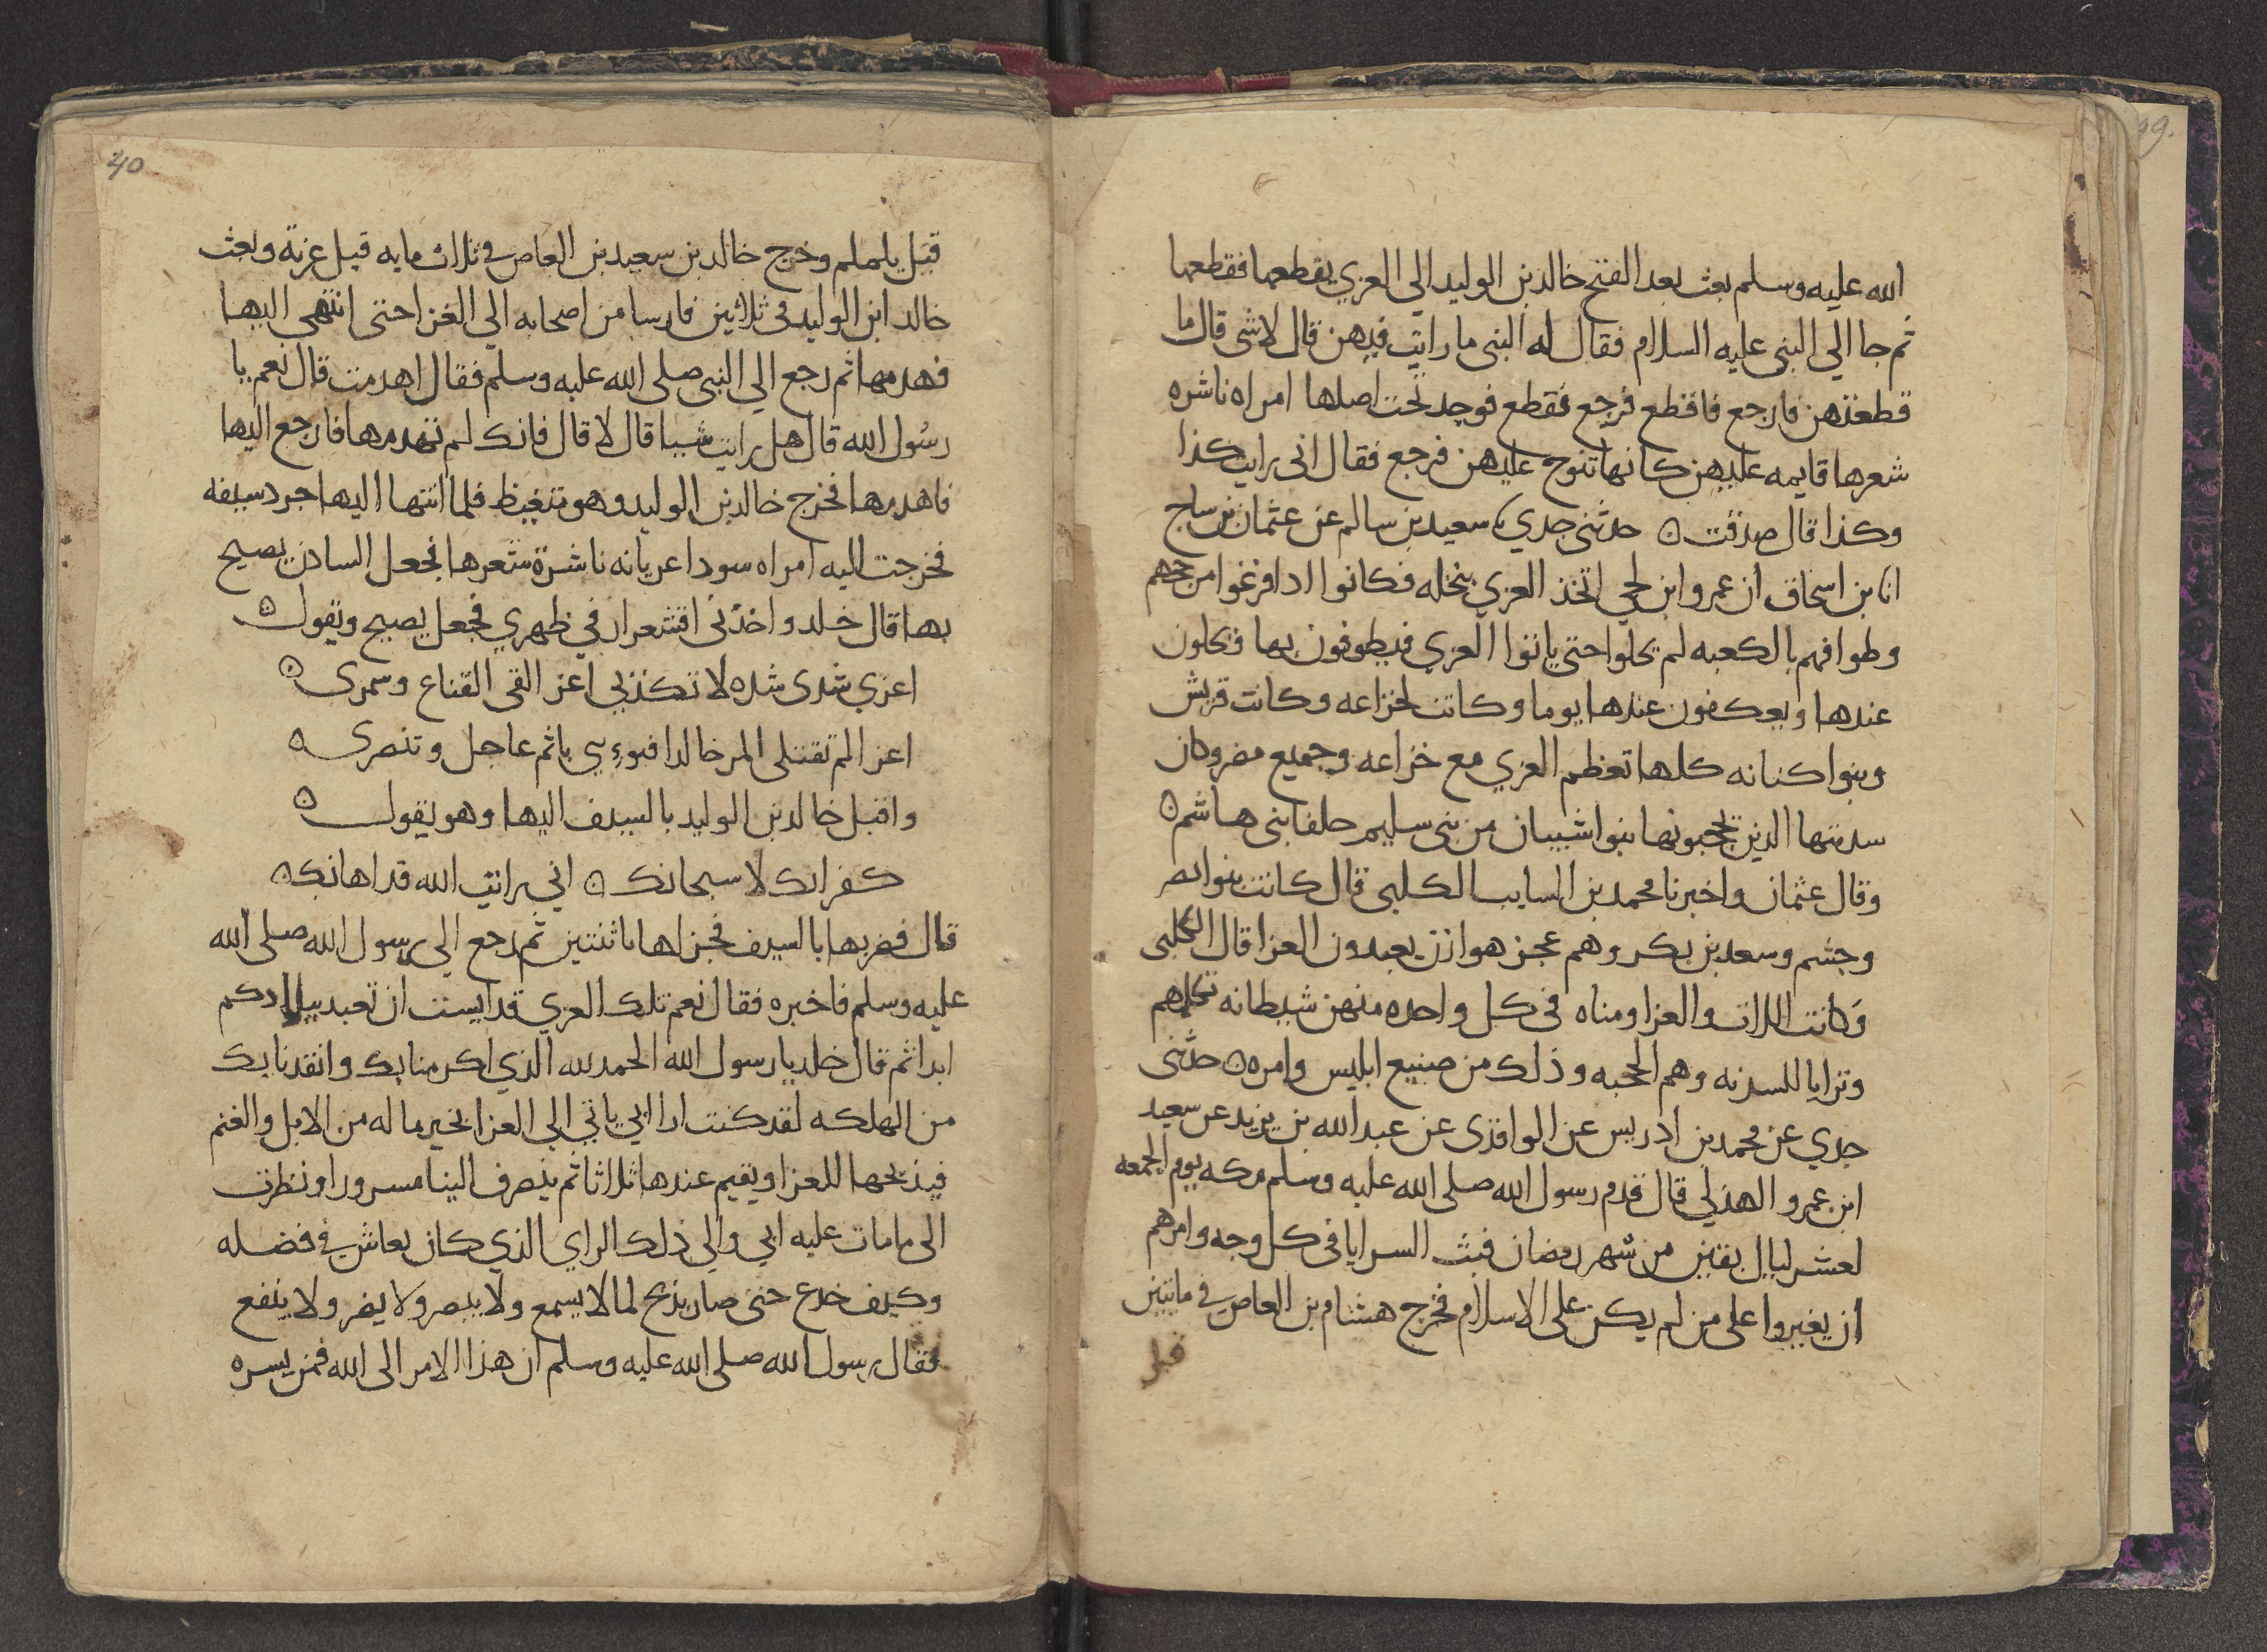 الله عليه وسلم بعث بعد الفتح خالد بن الوليد الي العزي يقطعها فقطعها
ثم جا الي النبي عليه السلام فقال له النبي ما رايت فيهن قال لا شي قال ما
قطعتهن فارجع فاقطع فرجع فقطع فوجد تحت اصلها امراه ناشره
شعرها قايمه عليهن كانها تنوح عليهن فرجع فقال اني رايت كذا
وكذا قال صدقت ه حدثني جدي سعيد بن سالم عن عثمان بن ساج
انا بن اسحاق ان عمرو ابن لحي اتخذ العزي بنخله فكانوا اذا فرغوا من حجهم
وطوافهم بالكعبه لم يحلوا حتى ياتوا العزي فيطوفون بها فيحلون
عندها ويعكفون عندها يوما وكانت لخزاعه وكانت قريش
وبنوا كنانه كلها تعظم العزي مع خزاعه وجميع مضر وكان
سدنتها الذين يحجبونها بنوا شيبان من بني سليم حلفا بني هاشم ه
وقال عثمان واخبرنا محمد بن السايب الكلبي قال كانت بنوا نصر
وجشم وسعد بن بكر وهم عجز هوازن يعبدون العزا قال الكلبي
وكانت اللات والعزا ومناه في كل واحده منهن شيطانه تكلمهم
وترايا للسدنه وهم الحجبه وذلك من صنيع ابليس وامره ه حدثني
جدي عن محمد بن ادريس عن الواقدي عن عبد الله بن يزيد عن سعيد
ابن عمرو الهذلي قال قدم رسول الله صلى الله عليه وسلم مكه يوم الجمعه
لعشر ليال بقين من شهر رمضان فبث السرايا في كل وجه وامرهم
ان يغيروا على من لم يكن على الاسلام فخرج هشام بن العاص في مايتين
قبل
40
قبل يلملم وخرج خالد بن سعيد بن العاص في ثلاث مايه قبل عرنة وبعث
خالد ابن الوليد في ثلاثين فارسا من اصحابه الي العزا حتى انتهي اليها
فهدمها ثم رجع الي النبي صلى الله عليه وسلم فقال اهدمت قال نعم يا
رسول الله قال هل رايت شيا قال لا قال فانك لم تهدمها فارجع اليها
فاهدمها فخرج خالد بن الوليد وهو متغيظ فلما انتها اليها جرد سيفه
فخرجت اليه امراه سودا عريانه ناشرة شعرها فجعل السادن يصيح
بها قال خلد واخذني اقشعرار في ظهري فجعل يصيح ويقول ه
اعزي شدى شده لا تكذبي اعز القي القناع وسمري ه
اعزا لم تقتلي المر خالدا فبوءي باثم عاجل وتنصري ه
واقبل خالد بن الوليد بالسيف اليها وهو يقول ه
كفرانك لا سبحانك ه اني رايت الله قد اهانك ه
قال فضربها بالسيف فجزلها باثنتين ثم رجع الي رسول الله صلى الله
عليه وسلم فاخبره فقال نعم تلك العزي قد ايست ان تعبد ببلادكم
ابدا ثم قال خلد يا رسول الله الحمد لله الذي اكرمنا بك وانقدنا بك
من الهلكه لقد كنت ارا ابي ياتي الي العزا بخير ماله من الابل والغنم
فيذبحها للعزا ويقيم عندها ثلاثا ثم ينصرف الينا مسرورا ونظرت
الى ما مات عليه ابي والي ذلك الراي الذي كان يعاش في فضله
وكيف خدع حتى صار يذبح لما لا يسمع ولا يبصر ولا يضر ولا ينفع
فقال رسول الله صلى الله عليه وسلم ان هذا الامر الى الله فمن يسره